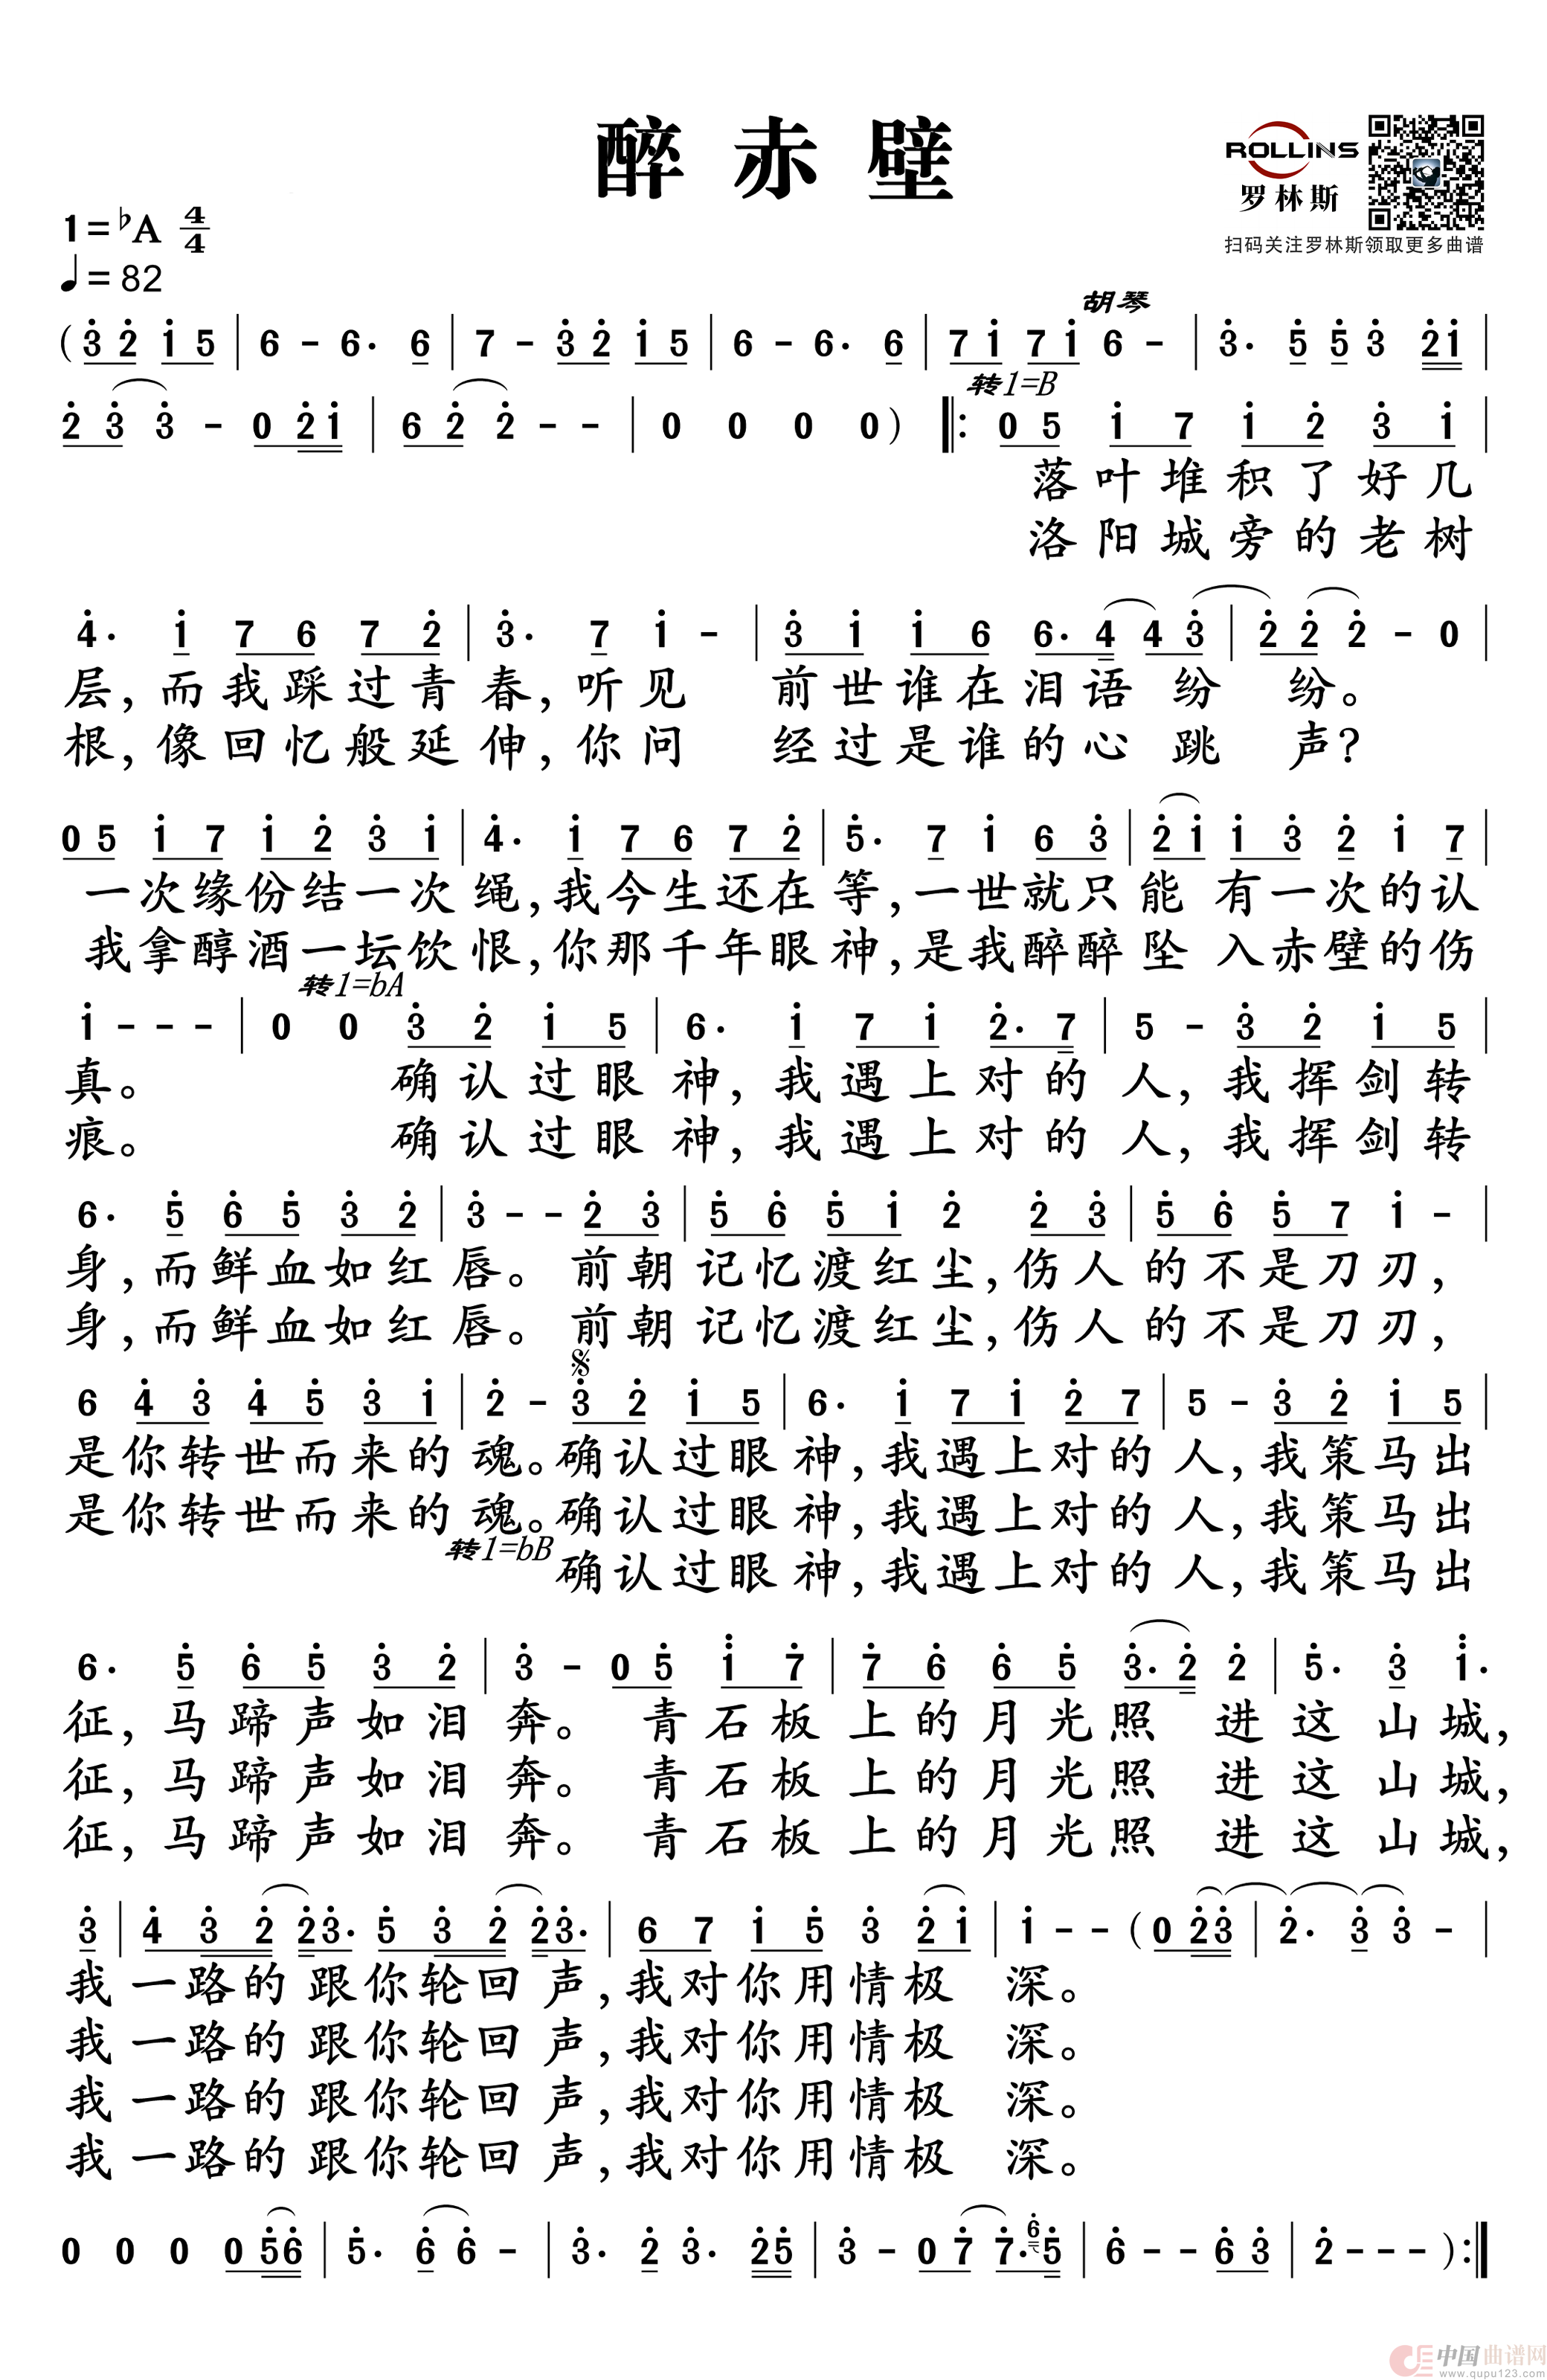 醉赤壁
ROLLINS
罗林斯
扫码关注罗林斯领取更多曲谱
1=♭A 4/4
♩=82
胡琴
(3 2 1 5 | 6 - 6. 6 | 7 - 3 2 1 5 | 6 - 6. 6 | 7 1 7 1 6 - | 3. 5 5 3 2 1 |
转1=B
2 3 3 - 0 2 1 | 6 2 2 - - | 0 0 0 0) |: 0 5 1 7 1 2 3 1 |
落叶堆积了好几
洛阳城旁的老树
4. 1 7 6 7 2 | 3. 7 1 - | 3 1 1 6 6. 4 4 3 | 2 2 2 - 0 |
层,而我踩过青春,听见 前世谁在泪语纷 纷。
根,像回忆般延伸,你问 经过是谁的心跳 声?
0 5 1 7 1 2 3 1 | 4. 1 7 6 7 2 | 5. 7 1 6 3 | 2 1 1 3 2 1 7 |
一次缘份结一次绳,我今生还在等,一世就只能 有一次的认
我拿醇酒一坛饮恨,你那千年眼神,是我醉醉坠 入赤壁的伤
转1=bA
1 - - - | 0 0 3 2 1 5 | 6. 1 7 1 2. 7 | 5 - 3 2 1 5 |
真。 确认过眼神,我遇上对的人,我挥剑转
痕。 确认过眼神,我遇上对的人,我挥剑转
6. 5 6 5 3 2 | 3 - - 2 3 | 5 6 5 1 2 2 3 | 5 6 5 7 1 - |
身,而鲜血如红唇。前朝记忆渡红尘,伤人的不是刀刃,
身,而鲜血如红唇。前朝记忆渡红尘,伤人的不是刀刃,
6 4 3 4 5 3 1 | 2 - 3 2 1 5 | 6. 1 7 1 2 7 | 5 - 3 2 1 5 |
是你转世而来的魂。确认过眼神,我遇上对的人,我策马出
是你转世而来的魂。确认过眼神,我遇上对的人,我策马出
转1=bB
确认过眼神,我遇上对的人,我策马出
6. 5 6 5 3 2 | 3 - 0 5 1 7 | 7 6 6 5 3. 2 2 | 5. 3 1.
征,马蹄声如泪奔。 青石板上的月光照 进这山城,
征,马蹄声如泪奔。 青石板上的月光照 进这山城,
征,马蹄声如泪奔。 青石板上的月光照 进这山城,
3 | 4 3 2 2 3. 5 3 2 2 3. | 6 7 1 5 3 2 1 | 1 - - (0 2 3 | 2. 3 3 - |
我一路的跟你轮回声,我对你用情极 深。
我一路的跟你轮回声,我对你用情极 深。
我一路的跟你轮回声,我对你用情极 深。
我一路的跟你轮回声,我对你用情极 深。
0 0 0 0 5 6 | 5. 6 6 - | 3. 2 3. 2 5 | 3 - 0 7 7. 6 5 | 6 - - 6 3 | 2 - - - ) :|
中国曲谱网
www.qupu123.com